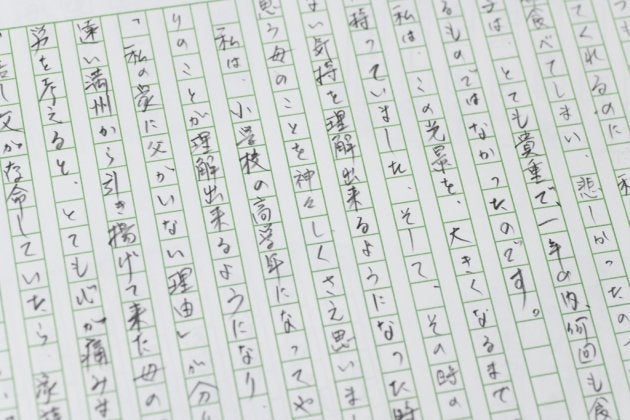 てくれるのに、私
食べてしまい、悲しかったの
は、とても貴重で、一年の内、何回も食
るものではなかったのです。
私は、この光景を、大きくなるまで
持っていました。そして、その時の
ない気持を理解出来るようになった時
思う母のことを神々しくさえ思いま
私は、小学校の高学年になってや
りのことが理解出来るようになり
「私の家に父がいない理由」が分
遠い満州から引き揚げて来た母の
労を考えると、とても心が痛みま
し父が存命していたら、家